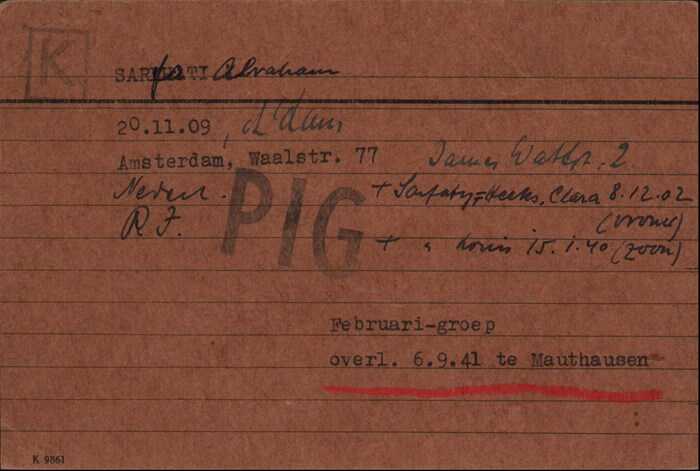 K
SARfaTI Abraham
20.11.09, A'dam
Amsterdam, Waalstr. 77 James Wattstr. 2.
Nederl. + Sarfaty-Heeks, Clara 8.12.02
R J. (vrouw)
PIG
+ " Louis 15.1.40 (zoon)
Februari-groep
overl. 6.9.41 te Mauthausen
K 9861